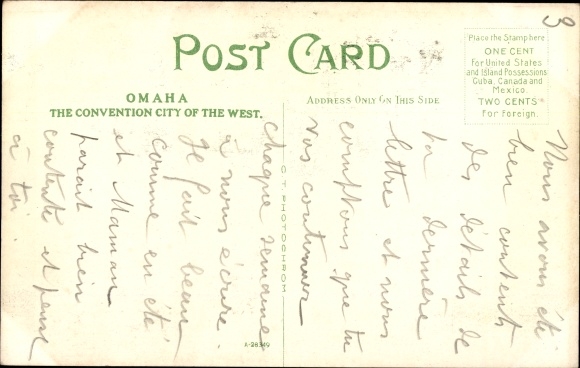 3
POST CARD
OMAHA
THE CONVENTION CITY OF THE WEST.
ADDRESS ONLY ON THIS SIDE
Place the Stamp here
ONE CENT
For United States
and Island Possessions
Cuba, Canada and
Mexico.
TWO CENTS
For Foreign.
C.T. PHOTOCHROM
A-26340
Nous avons été
bien contents
des détails de
ta dernière
lettre et nous
comptons que tu
vas continuer
chaque semaine
à nous écrire.
Il fait beau
comme en été
et Maman
parait bien
contente et pense
à toi.